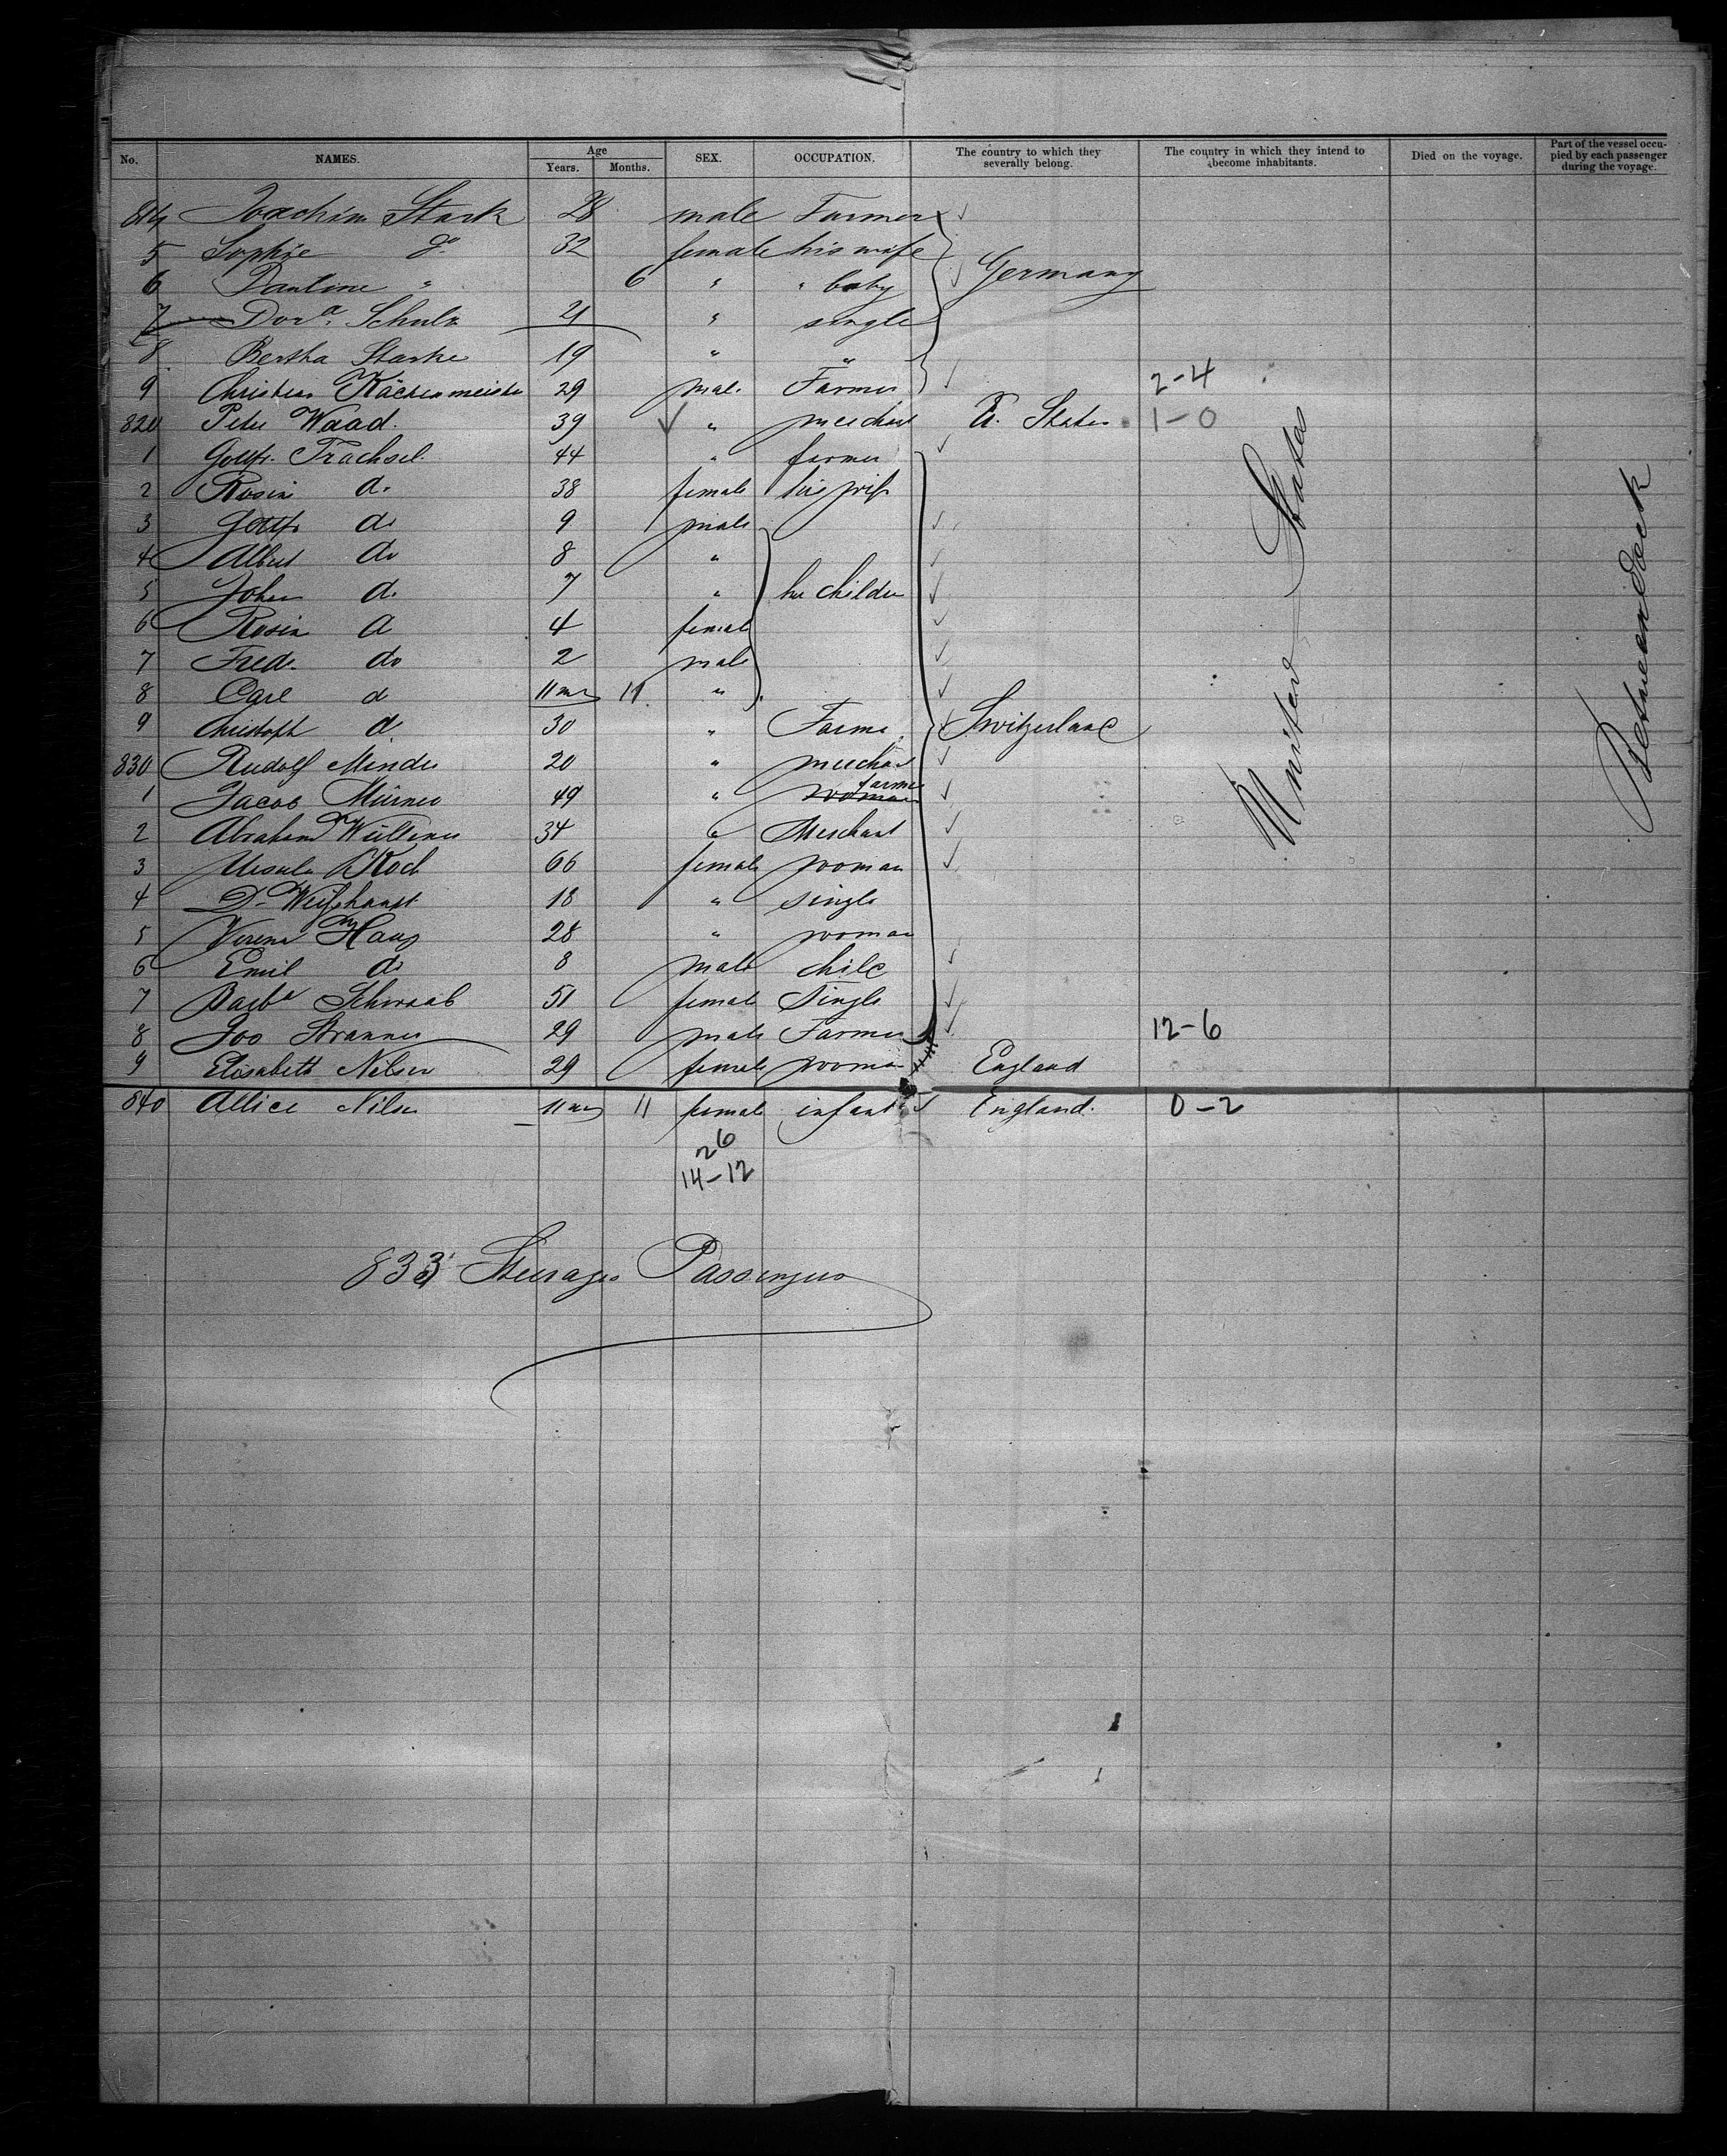 No. NAMES. Age Years. Months. SEX. OCCUPATION. The country to which they severally belong. The country in which they intend to become inhabitants. Died on the voyage. Part of the vessel occupied by each passenger during the voyage.
814 Joachim Stark 28 male Farmer
5 Sophie do 32 female his wife
6 Pauline " 6 " " baby Germany
7 Dora Schulz 21 " single
8 Bertha Starke 19 " "
9 Christian Käckenmeister 29 male Farmer 2-4
820 Peter Waad. 39 " merchant U. States 1-0
1 Gottfr. Trachsel. 44 " farmer
2 Rosin do 38 female his wife
3 Gottfr do 9 male
4 Albert do 8 "
5 Johan do 7 " his children
6 Rosin do 4 female
7 Fred. do 2 male
8 Carl do 11 mo 11 "
9 Christoph do 30 " Farmer Switzerland
830 Rudolf Minder 20 " merchant
1 Jacob Mürner 49 " woman farmer
2 Abraham Wüllener 34 " Merchant
3 Ursula Koch 66 female woman
4 D. 18 " single
5 Verena Haug 28 " woman
6 Emil do 8 male child
7 Barba Schwaab 51 female Single
8 29 male Farmer 12-6
9 Elisabeth Nelsen 29 female woman England
840 Allice Nilsen 11 mo 11 female infant England. 0-2
United States
Between deck
26
14-12
833 Steerages Passengers